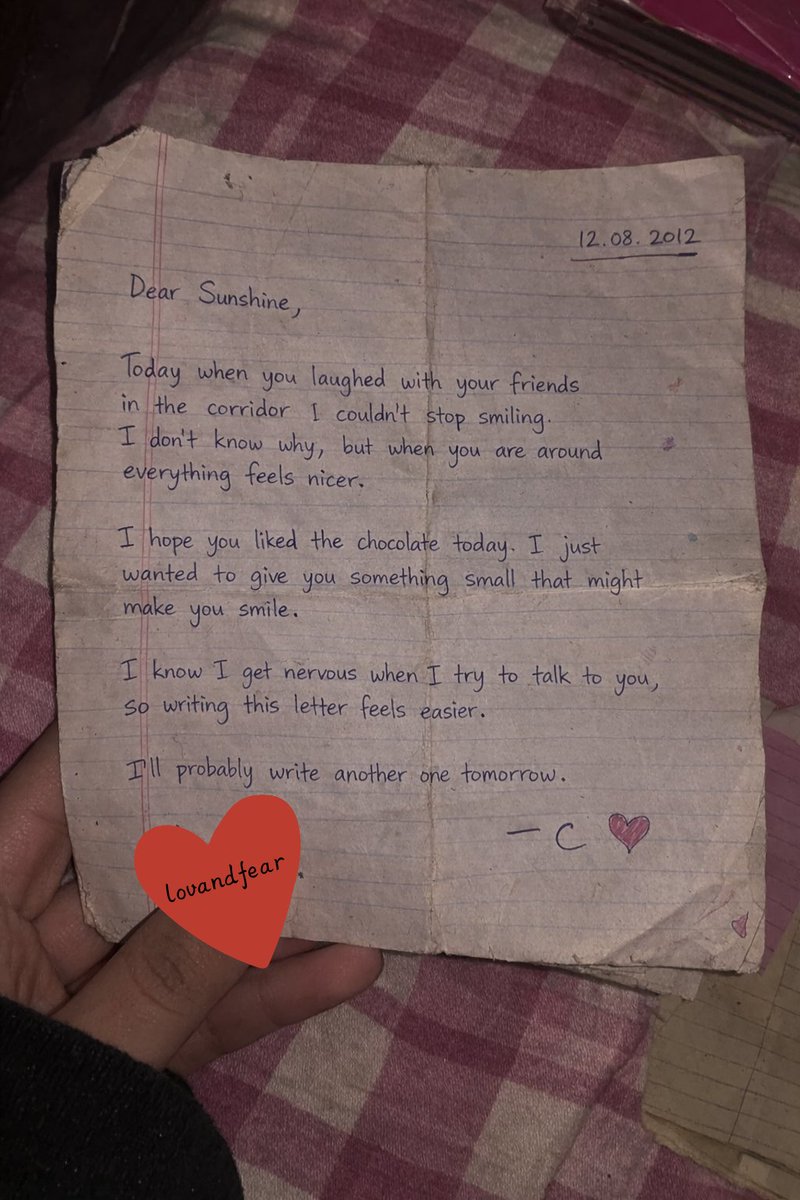 12.08.2012
Dear Sunshine,
Today when you laughed with your friends
in the corridor I couldn't stop smiling.
I don't know why, but when you are around
everything feels nicer.
I hope you liked the chocolate today. I just
wanted to give you something small that might
make you smile.
I know I get nervous when I try to talk to you,
so writing this letter feels easier.
I'll probably write another one tomorrow.
— C
lovandfear